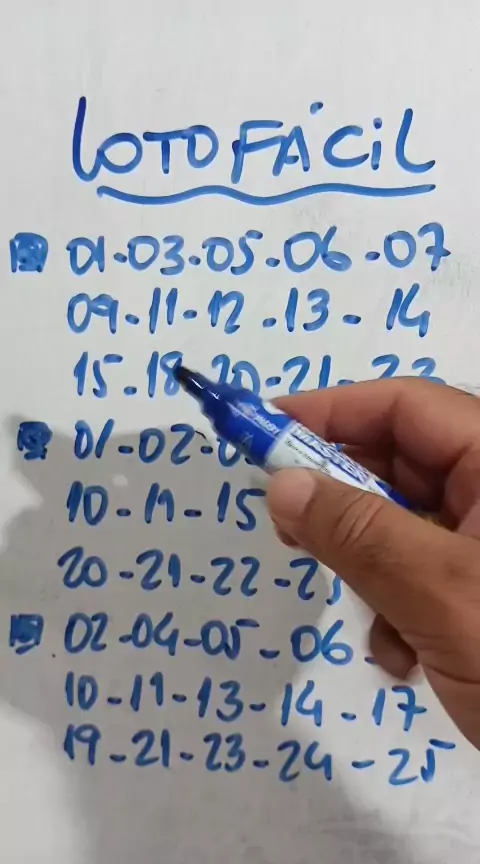 LOTOFÁCIL
01-03-05-06-07
09-11-12-13-14
15-18-20-21-
01-02-
10-11-15
20-21-22-
02-04-05-06-
10-11-13-14-17
19-21-23-24-25